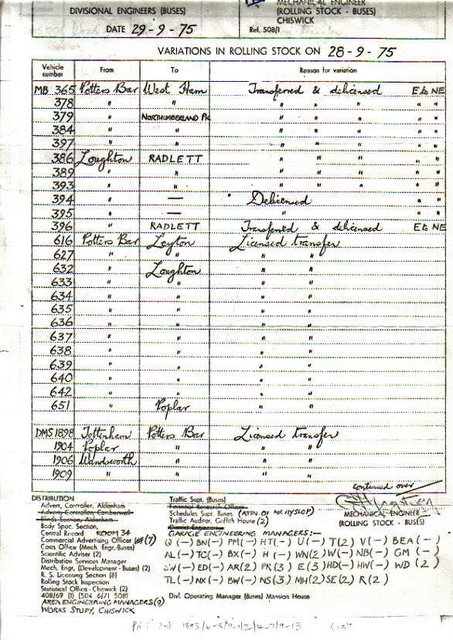 DIVISIONAL ENGINEERS (BUSES)
MECHANICAL ENGINEER
(ROLLING STOCK - BUSES)
CHISWICK
DATE 29-9-75
Ref. 508/1
VARIATIONS IN ROLLING STOCK ON 28-9-75
Vehicle number From To Reason for variation
MB 365 Potters Bar West Ham Transferred & delicensed E & NE
378 " " " " " " "
379 " NORTHUMBERLAND PK " " " " "
384 " " " " " " "
397 " " " " " " "
386 Loughton RADLETT " " " " "
389 " " " " " " "
393 " " " " " " "
394 " — Delicensed " "
395 " — " " "
396 " RADLETT Transferred & delicensed E & NE
616 Potters Bar Leyton Licensed transfer
627 " " " "
632 " Loughton " "
633 " " " "
634 " " " "
635 " " " "
636 " " " "
637 " " " "
638 " " " "
639 " " " "
640 " " " "
642 " " " "
651 " Poplar " "
DMS 1898 Tottenham Potters Bar Licensed transfer
1904 Poplar " " "
1906 Wandsworth " " "
1909 " " " "
continued over
MECHANICAL ENGINEER
(ROLLING STOCK - BUSES)
DISTRIBUTION
Advert. Controller, Aldenham
Advert. Controller, Camberwell
Body Spec. Section
Central Record ROOM 34
Commercial Advertising Officer (7)
Costs Office (Mech. Engr. Buses)
Scientific Adviser (2)
Distribution Services Manager
Mech. Engr. (Development - Buses) (2)
R. S. Licensing Section (8)
Rolling Stock Inspection
Statistical Office - Chiswick (2)
408/69 (1) (504 6/71 508)
AREA ENGINEERING MANAGERS
WORKS STUDY, CHISWICK
Traffic Supt. (Buses)
Financial Research Officer
Schedules Supt. Buses (ATTN OF MR HYSLOP)
Traffic Auditor, Griffith House (2)
GARAGE ENGINEERING MANAGERS:-
Q (-) BN(-) PM(-) HT(-) U(-) T(2) V(-) BEA(-)
AL(-) TC(-) BX(-) H(-) WN(2) W(-) NB(-) GM(-)
SW(-) ED(-) AR(2) PR(3) E(3) HD(-) HW(-) WD(2)
TL(-) NX(-) BW(-) NS(3) MH(2) SE(2) R(2)
Divl. Operating Manager (Buses) Mansion House